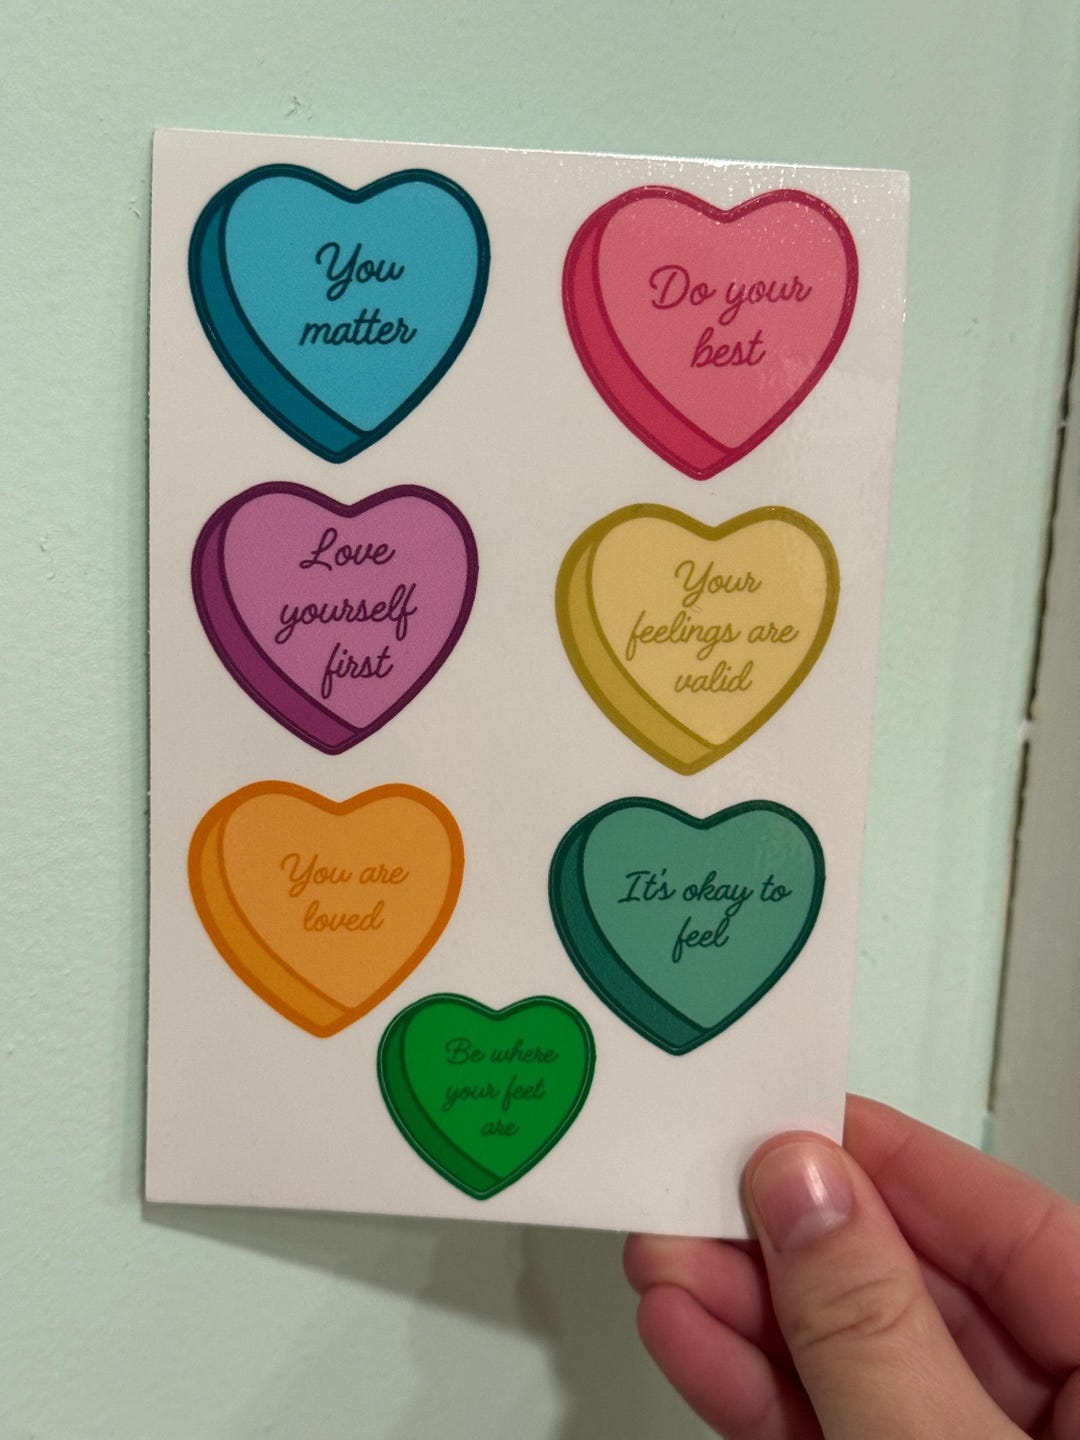 You
matter
Do your
best
Love
yourself
first
Your
feelings are
valid
You are
loved
It's okay to
feel
Be where
your feet
are